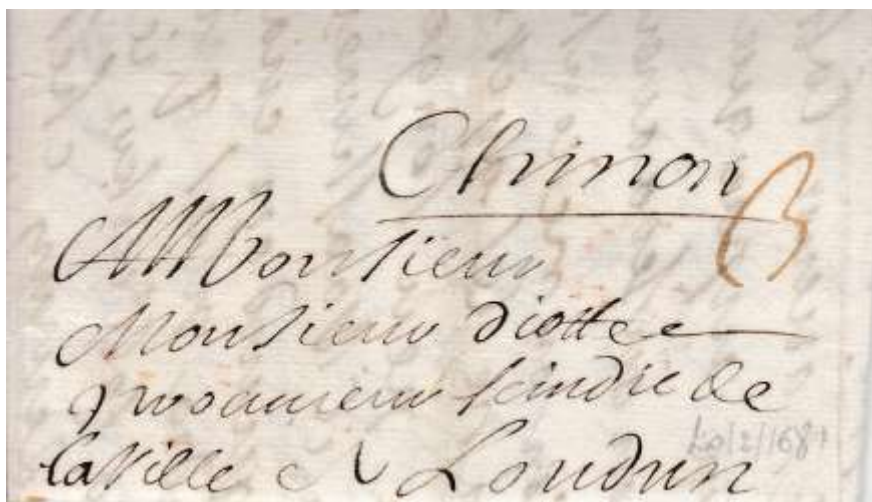 Chinon
3
A Monsieur
Monsieur diotte
procureur scindic de
la ville A Loudun